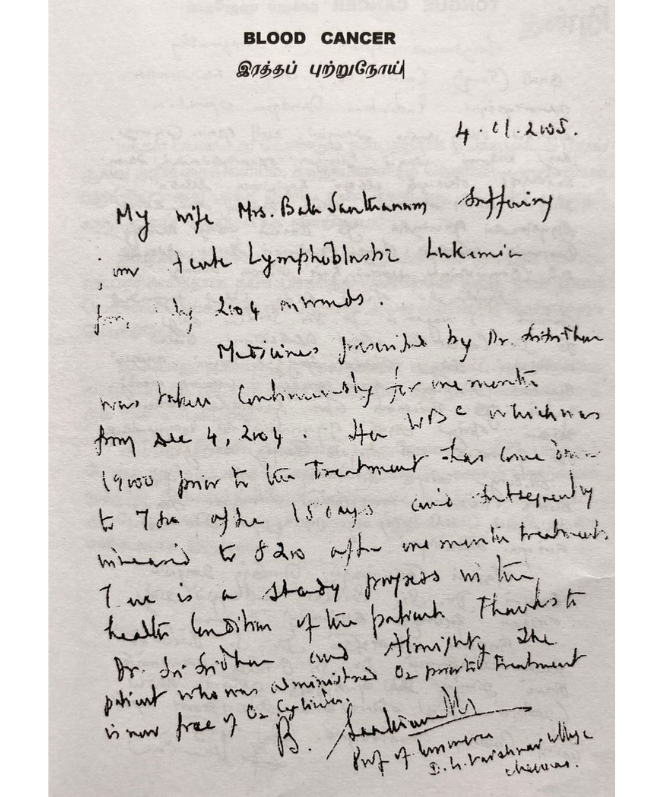 BLOOD CANCER
இரத்தப் புற்றுநோய்
4.11.2005.
My wife Mrs. Bala Santhanam Suffering
Lymphoblastic Lukemia
2004 onwards.
Medicines prescribed by Dr. Sridhar
was taken Continuously for one month
from Dec 4, 2004. Her WBC which was
19000 prior to the Treatment has come down
to after 15 days and subsequently
increased to 8200 after one month treatment.
is a steady progress in the
health Condition of the patient. Thanks to
Dr. Sri Sridhar and Almighty. The
patient who was administered O2 prior to Treatment
is now free of O2 Cylinder.
B. Santhanam
Prof of Commerce
D.G. Vaishnav College
Chennai.